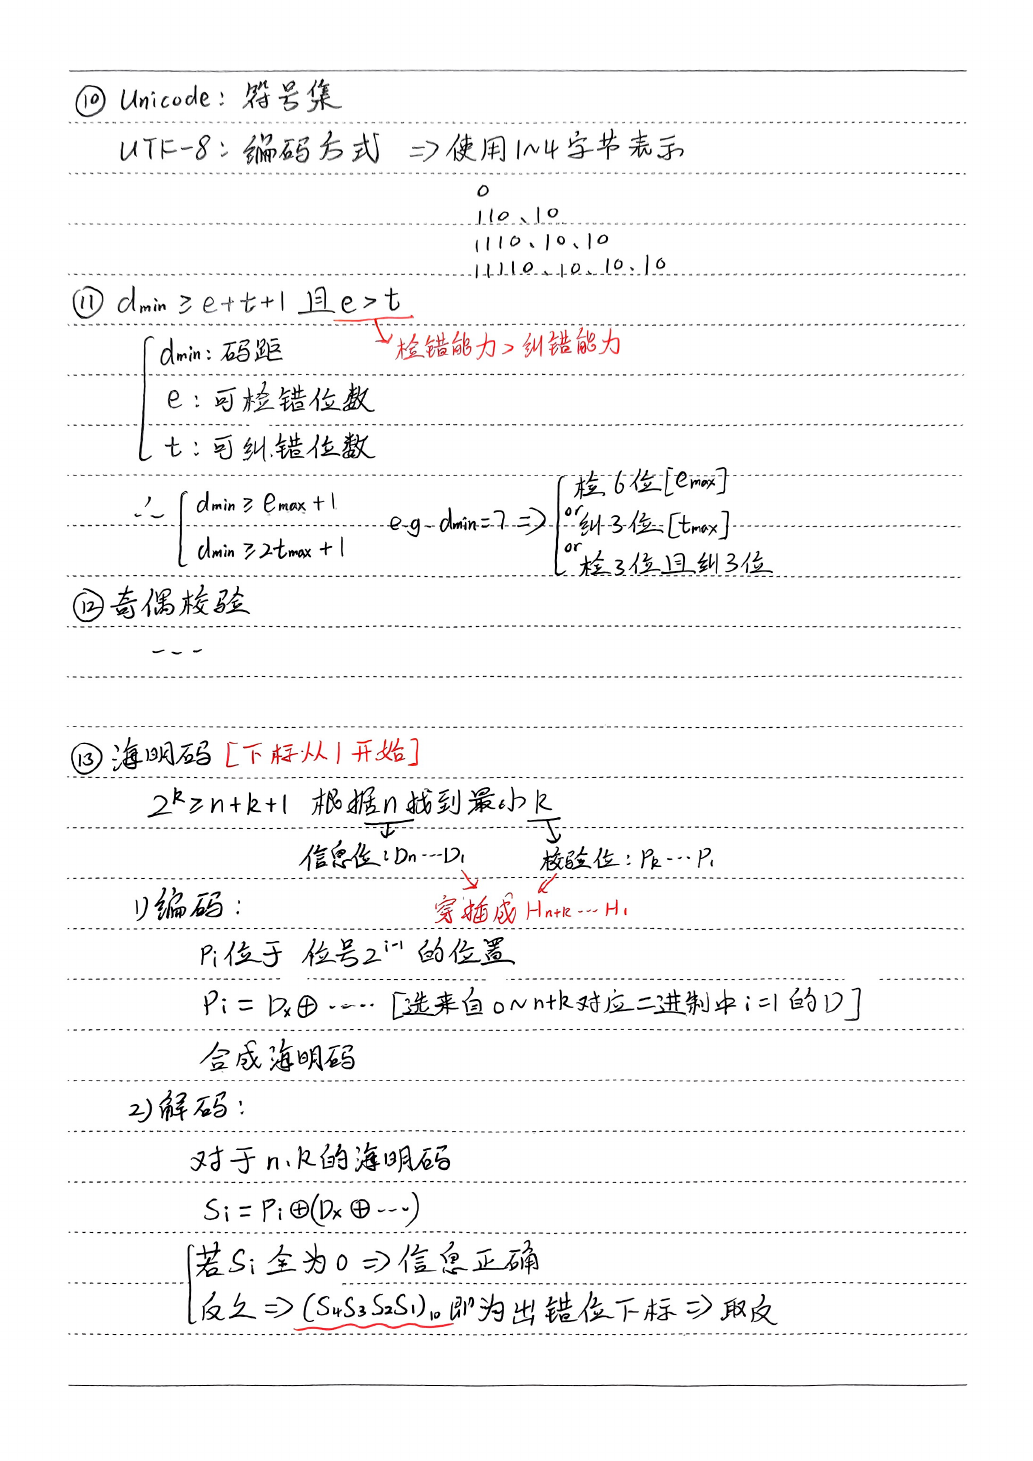 ⑩ Unicode: 符号集
UTF-8: 编码方式 => 使用1~4字节表示
0
110、10
1110、10、10
11110、10、10、10
⑪ dmin ≥ e+t+1 且 e>t
检错能力>纠错能力
dmin: 码距
e: 可检错位数
t: 可纠错位数
∴ { dmin ≥ emax+1
dmin ≥ 2tmax+1
e.g. dmin=7 => { 检6位[emax]
or 纠3位[tmax]
or 检3位且纠3位
⑫ 奇偶校验
---
⑬ 海明码 [下标从1开始]
2^k ≥ n+k+1 根据n找到最小k
信息位: Dn…D1 校验位: Pk…P1
穿插成 Hn+k…H1
1) 编码:
Pi位于 位号2^(i-1) 的位置
Pi = Dx⊕ ····· [选来自0~n+k对应二进制中i=1的D]
合成海明码
2) 解码:
对于n、k的海明码
Si = Pi⊕(Dx⊕···)
若Si全为0 => 信息正确
反之 => (S4S3S2S1)10 即为出错位下标 => 取反